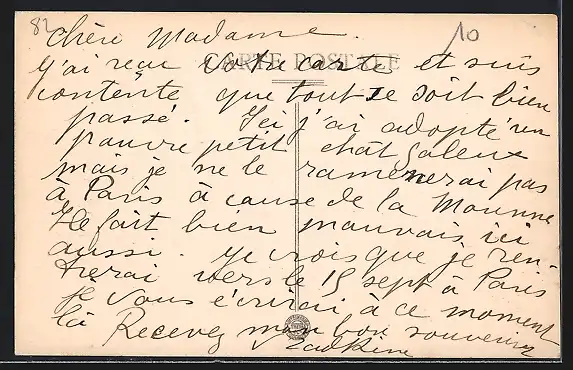 82
10
CARTE POSTALE
chère madame.
j'ai reçu votre carte et suis
contente que tout se soit bien
passé. Ici j'ai adopté un
pauvre petit chat galeux
mais je ne le ramenerai pas
à Paris à cause de la Moune
Il fait bien mauvais ici
aussi. Je crois que je ren-
trerai vers le 15 sept à Paris
je vous écrirai à ce moment
là Recevez mon bon souvenir